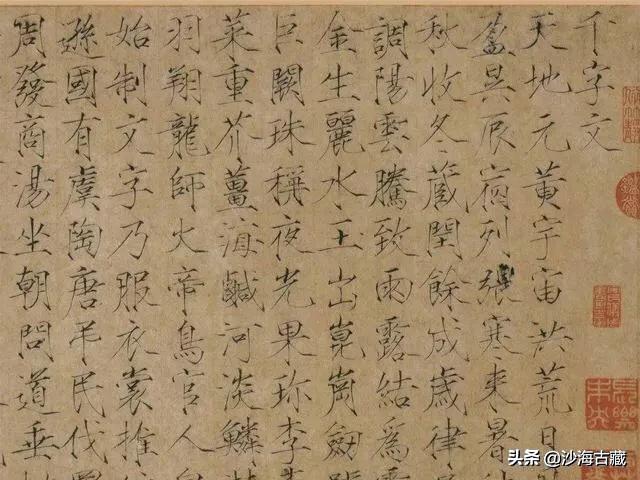 千字文
天地元黃宇宙洪荒日
盈昃辰宿列張寒來暑
秋收冬藏閏餘成歲律
調陽雲騰致雨露結爲
金生麗水玉出崑崗劒
巨闕珠稱夜光果珍李
菜重芥薑海鹹河淡鱗
羽翔龍師火帝鳥官人
始制文字乃服衣裳推
遜國有虞陶唐弔民伐
周發商湯坐朝問道垂
头条 @沙海古藏